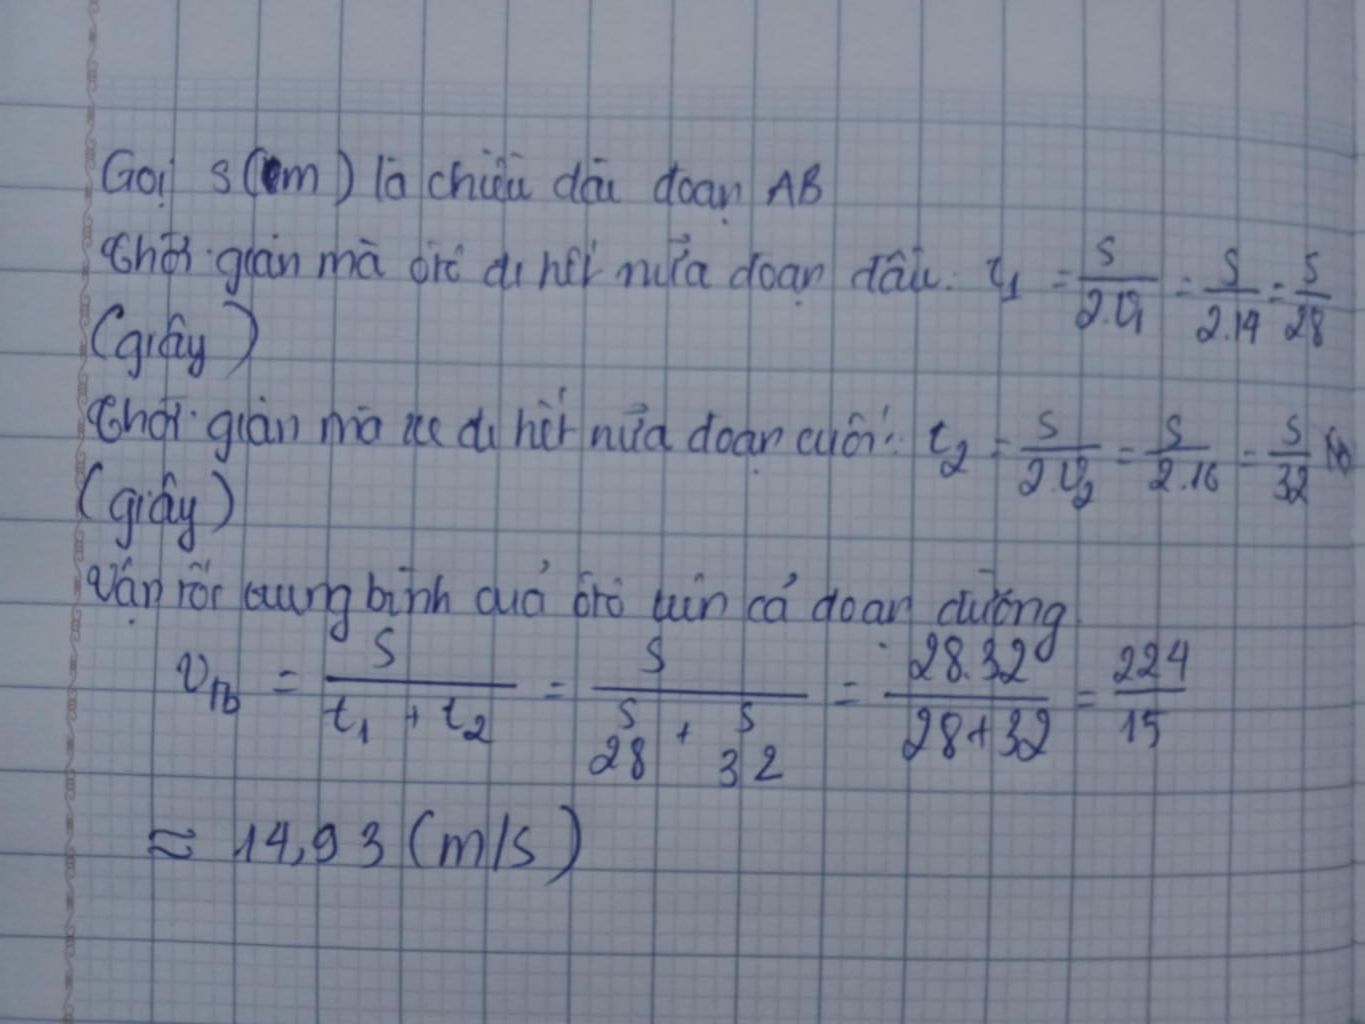 Gọi s(m) là chiều dài đoạn AB
Thời gian mà ôtô đi hết nửa đoạn đầu: t₁ = s/(2.v₁) = s/(2.14) = s/28
(giây)
Thời gian mà xe đi hết nửa đoạn cuối: t₂ = s/(2.v₂) = s/(2.16) = s/32
(giây)
Vận tốc trung bình của ôtô trên cả đoạn đường
v_tb = S/(t₁ + t₂) = S/(s/28 + s/32) = 28.32/(28+32) = 224/15
≈ 14,93 (m/s)